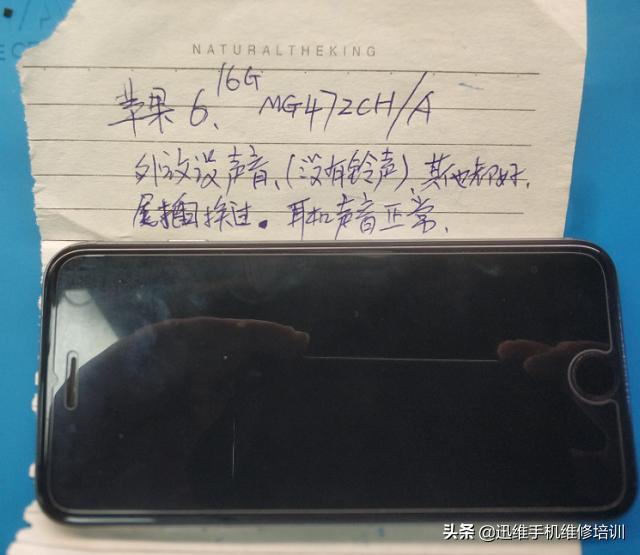 NATURALTHEKING
苹果6、16G MG472CH/A
外放没声音、(没有铃声)、其他都好、
尾插换过。耳机声音正常、
头条 @迅维手机维修培训